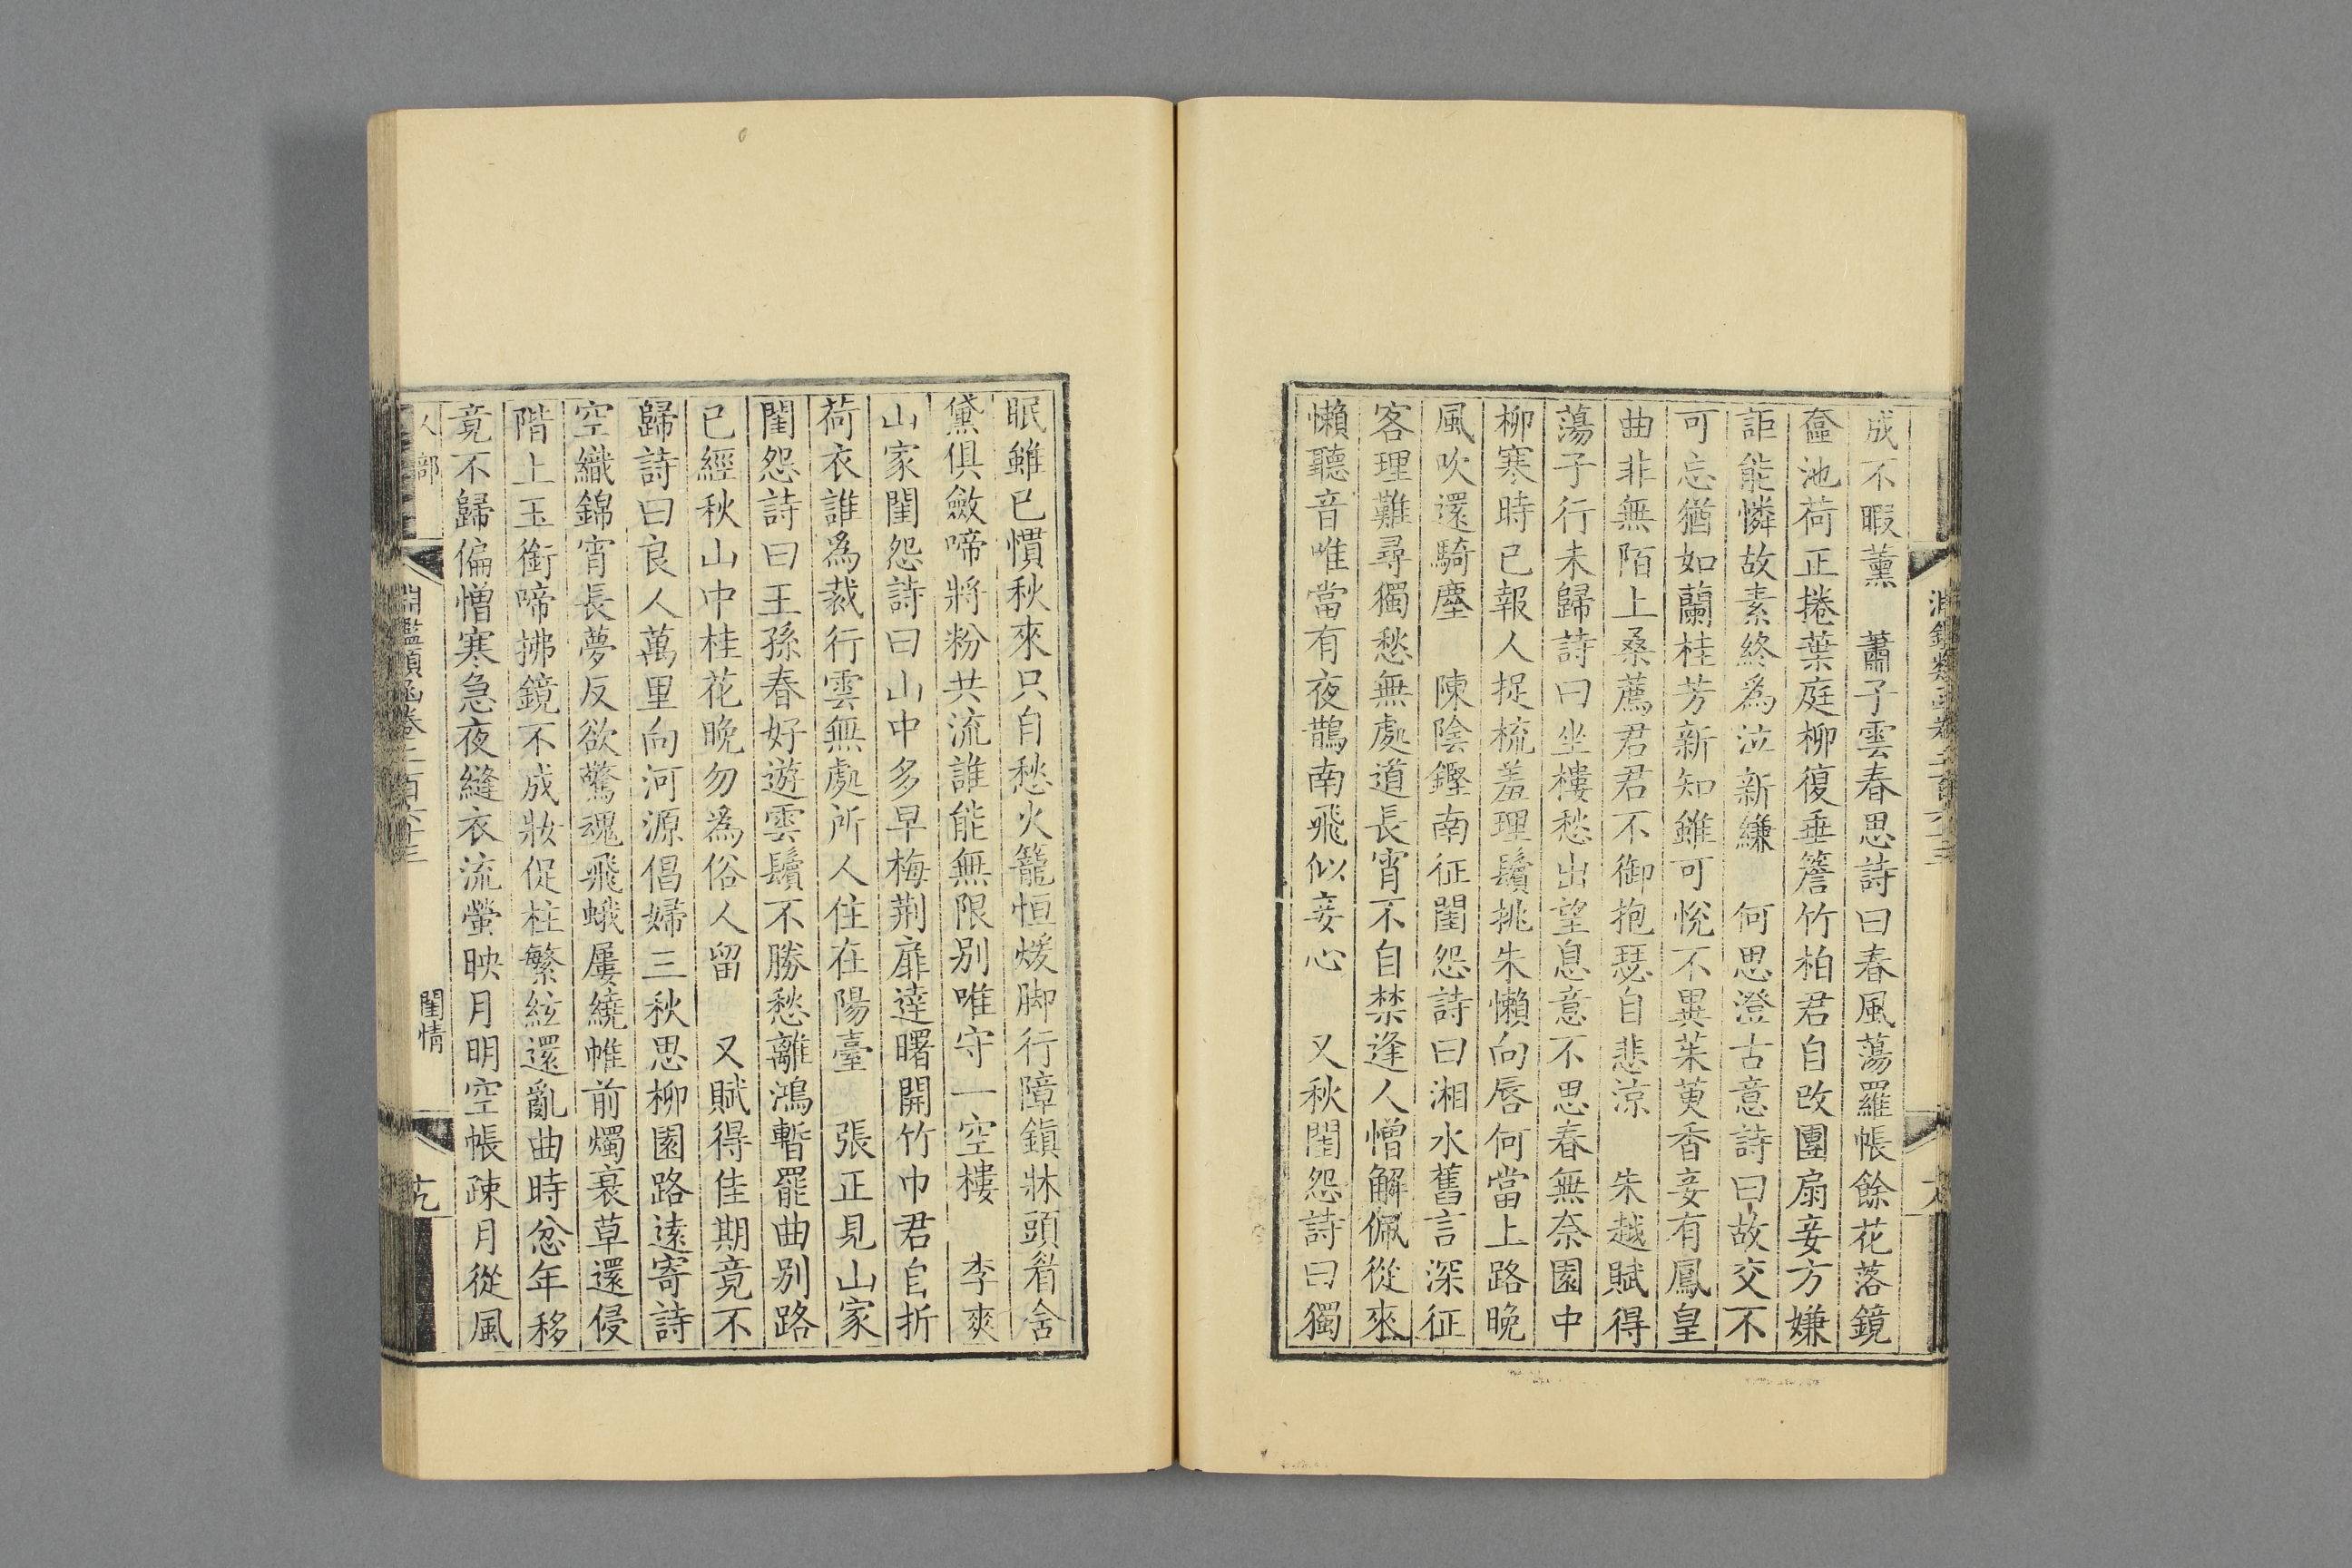 成不暇薰　蕭子雲春思詩曰春風蕩羅帳餘花落鏡
奩池荷正捲葉庭柳復垂簷竹柏君自改團扇妾方嫌
詎能憐故素終爲泣新縑　何思澄古意詩曰故交不
可忘猶如蘭桂芳新知雖可悅不異茱萸香妾有鳳皇
曲非無陌上桑薦君君不御抱瑟自悲涼　朱越賦得
蕩子行未歸詩曰坐樓愁出望息意不思春無奈園中
柳寒時已報人捉梳羞理鬢挑朱懶向唇何當上路晚
風吹還騎塵　陳陰鏗南征閨怨詩曰湘水舊言深征
客理難尋獨愁無處道長宵不自禁逢人憎解佩從來
懶聽音唯當有夜鵲南飛似妾心　又秋閨怨詩曰獨
眠雖已慣秋來只自愁火籠恒煖脚行障鎭牀頭眉含
黛俱斂啼將粉共流誰能無限别唯守一空樓　李爽
山家閨怨詩曰山中多早梅荆扉達曙開竹巾君自折
荷衣誰爲裁行雲無處所人住在陽臺　張正見山家
閨怨詩曰王孫春好遊雲鬢不勝愁離鴻暫罷曲别路
已經秋山中桂花晚勿為俗人留　又賦得佳期竟不
歸詩曰良人萬里向河源倡婦三秋思柳園路遠寄詩
空織錦宵長夢反欲驚魂飛蛾屢繞帷前燭衰草還侵
階上玉銜啼拂鏡不成妝促柱繁絃還亂曲時忿年移
竟不歸偏憎寒急夜縫衣流螢映月明空帳疎月從風
人部　淵鑑類函卷二百六十三　閨情　十九